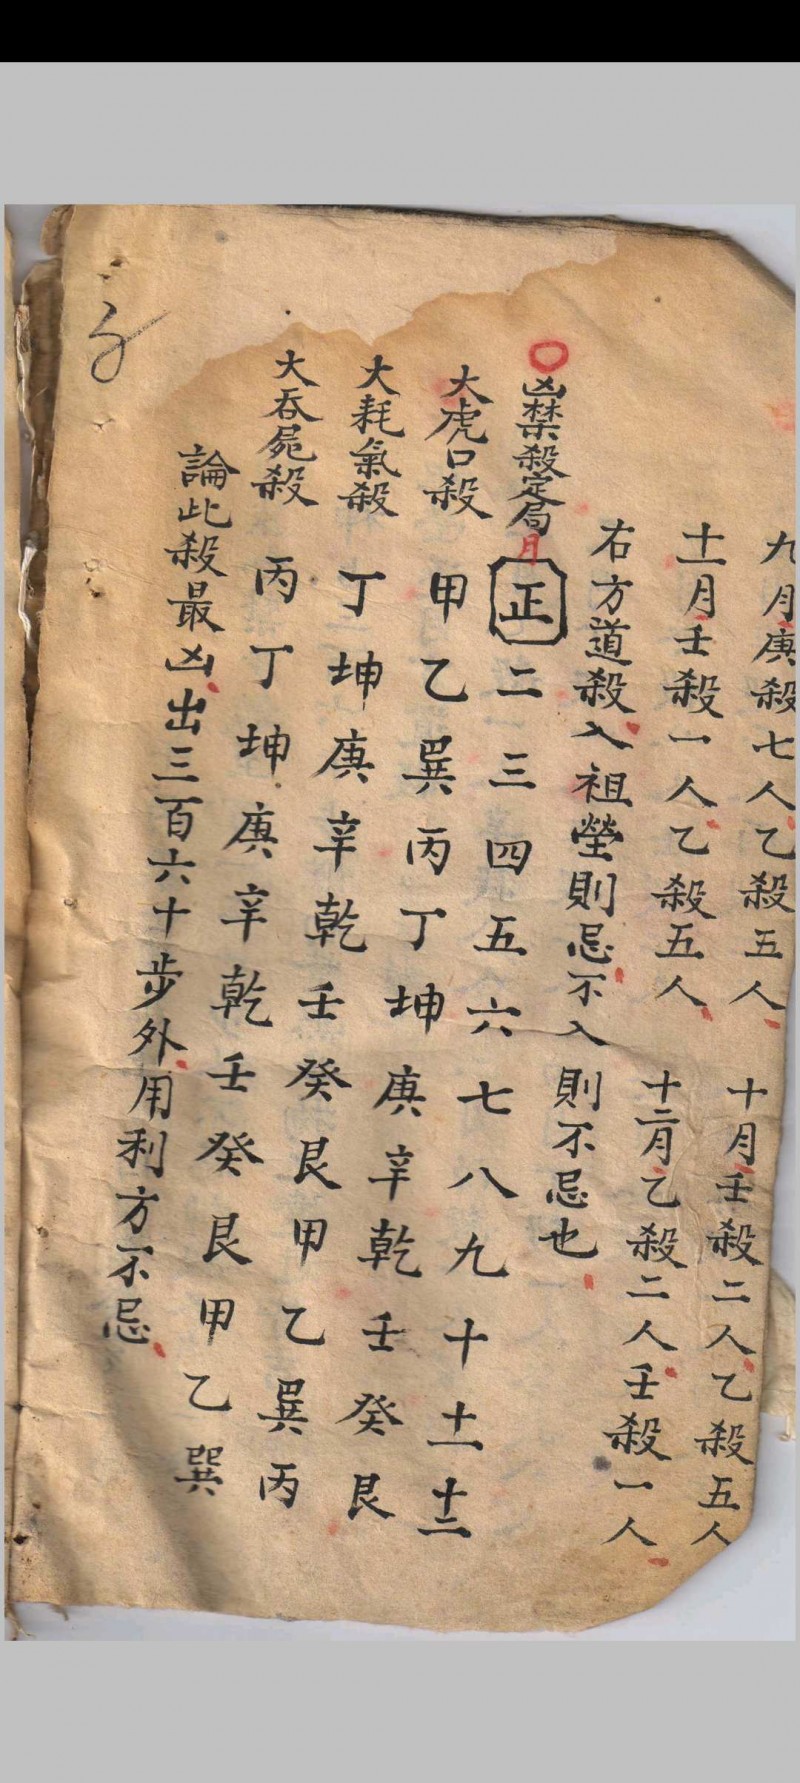 九月庚殺七人乙殺五人 十月壬殺二人乙殺五人
十一月壬殺一人乙殺五人 十二月乙殺二人壬殺一人
右方道殺入祖塋則忌不入則不忌也
凶禁殺定局月正二三四五六七八九十十一十二
大虎口殺 甲乙巽丙丁坤庚辛乾壬癸艮
大耗氣殺 丁坤庚辛乾壬癸艮甲乙巽丙
大吞屍殺 丙丁坤庚辛乾壬癸艮甲乙巽
論此殺最凶出三百六十步外用利方不忌